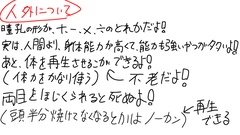 人外について
瞳孔の形が、十、一、x、六のどれかだよ!
実は、人間より、身体能力が高くて、能力も強いやつが多いよ!
あと、体を再生させることができるよ!
(体力をかなり使う) 不老だよ!
両目をほじくられると死ぬよ!
(頭半分焼けてなくなるとかはノーカン) 再生できる